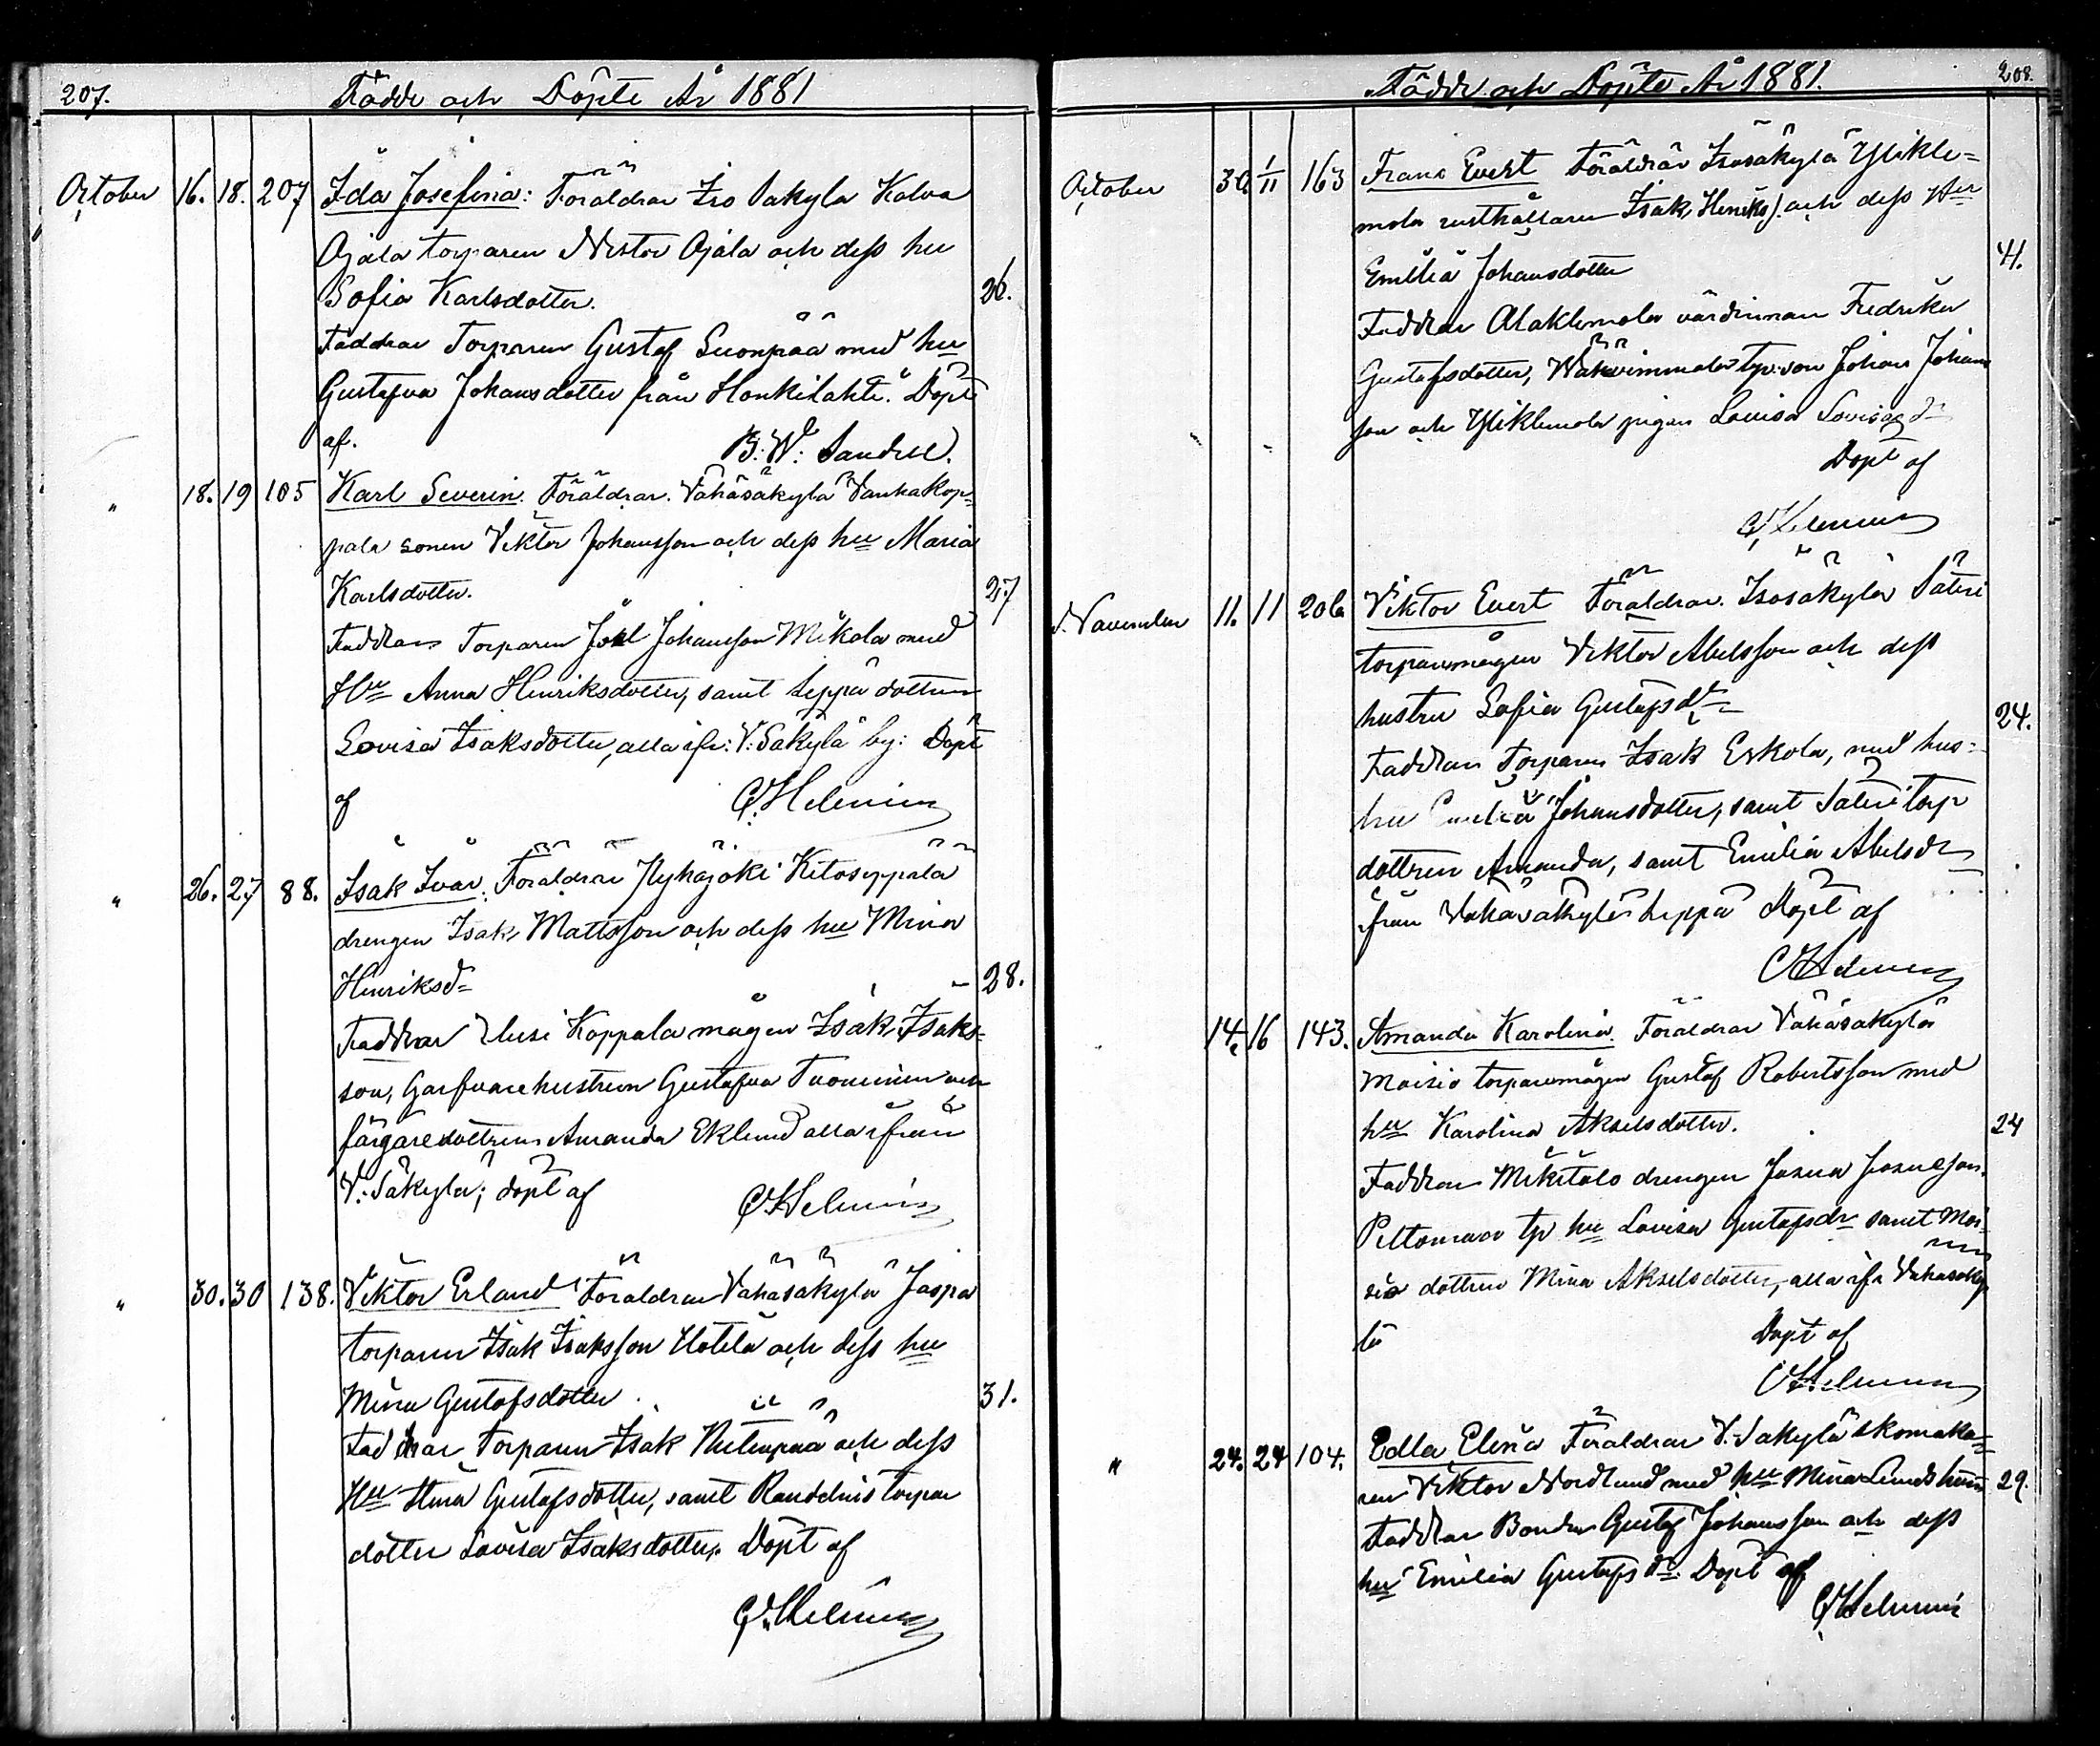 207.
Födde och Döpte År 1881
October 16. 18. 207 Ida Josefina: Föräldrar Iso Säkylä Kalva
Ojala torparen Nestor Ojala och dess hu
Sofia Karlsdotter. 26.
Faddrar Torparen Gustaf Suonpää med hu
Gustafva Johansdotter från Honkilahti. Döpt
af. B: W: Sandell.
" 18. 19 105 Karl Severin. Föräldrar. Vähäsäkylä Vanhakop-
pala sonen Viktor Johansson och dess hu Maria
Karlsdotter. 27
Faddrar Torparen Joel Johansson Mikola med
Hu Anna Henriksdotter, samt Seppä dottren
Lovisa Isaksdotter, alla ifr: V: Säkylä by: Döpt
af C. Helenius
" 26. 27 88. Isak Ivar. Föräldrar Pyhäjoki Ketoseppälä
drengen Isak Mattsson och dess hu Mina
Henriksd= 28.
Faddrar Uusi Koppala mågen Isak Isaks-
son, Garfvarehustrun Gustafva Tuominen och
färgaredottren Amanda Eklund alla ifrån
V: Säkylä; döpt af C Helenius
" 30. 30 138. Viktor Erland Föräldrar Vähäsäkylä Jaspa
torparen Isak Isaksson Uotila och dess hu
Mina Gustafsdotter. 31.
Faddrar Torparen Isak och dess
Hu Stina Gustafsdotter, samt torpar
dotter Lovisa Isaksdotter. Döpt af
C. Helenius
Födde och Döpte År 1881.
208.
October 30 1/11 163 Frans Evert Föräldrar Isosäkylä Ylikle-
mola rusthållaren Isak Henriks). och dess Hu
Emilia Johansdotter 41.
Faddrar Alaklemola värdinnan Fredrika
Gustafsdotter, tp: son Johan Johans
son och Yliklemola pigan Lovisa
Döpt af
C Helenius
November 11. 11 206 Viktor Evert Föräldrar. Isosäkylä Säteri
torparemågen Viktor Abelsson och dess
hustru Sofia Gustafsdr 24.
Faddrar Torparen Isak Eskola, med hus-
hu Emilia Johansdotter, samt Säteri torp
dottren Amanda, samt Emilia Abelsdr
från Vähäsäkylä Seppä Döpt af
C Helenius
14. 16 143. Amanda Karolina. Föräldrar Vähäsäkylä
Moisio torparemågen Gustaf Robertsson med
hu Karolina Akselsdotter. 24
Faddrar Mikitalo drengen Josua Josuason,
Peltomaa tp hu Lovisa Gustafsdr samt Moi-
sio dottren Mina Akselsdotter, alla ifr Vähäsäky
lä Döpt af
C Helenius
" 24. 24 104. Edla Elina Föräldrar V. Säkylä skomaka-
ren Viktor Nordlund med hu Mina 29.
Faddrar Bonden Gustaf Johansson och dess
hu Emilia Gustafsdr. Döpt af
C Helenius